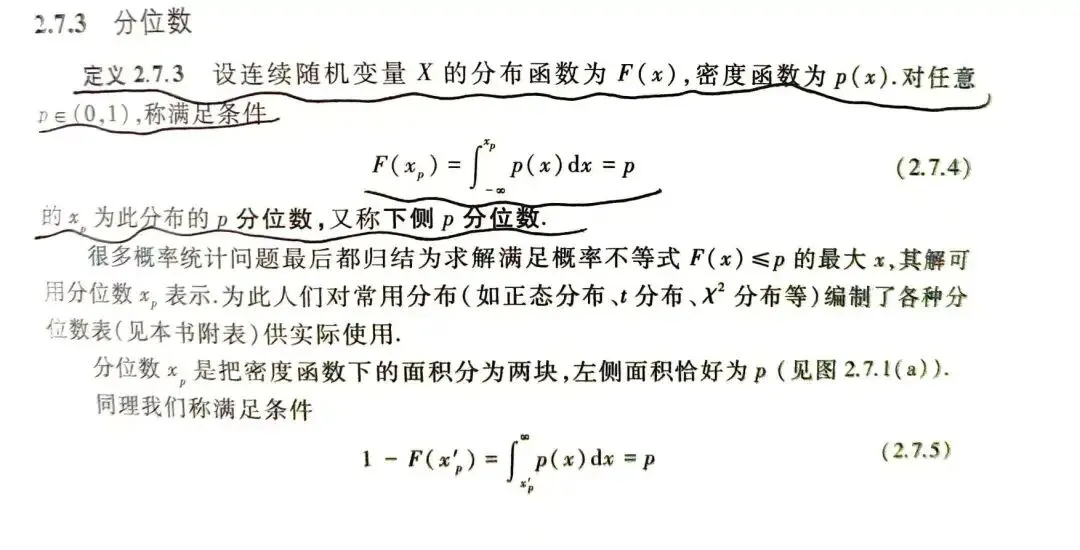 2.7.3 分位数
定义 2.7.3 设连续随机变量 X 的分布函数为 F(x),密度函数为 p(x).对任意
p∈(0,1),称满足条件
F(x_p) = ∫_{-∞}^{x_p} p(x)dx = p (2.7.4)
的 x_p 为此分布的 p 分位数,又称下侧 p 分位数.
很多概率统计问题最后都归结为求解满足概率不等式 F(x)≤p 的最大 x,其解可
用分位数 x_p 表示.为此人们对常用分布(如正态分布、t 分布、χ² 分布等)编制了各种分
位数表(见本书附表)供实际使用.
分位数 x_p 是把密度函数下的面积分为两块,左侧面积恰好为 p (见图 2.7.1(a)).
同理我们称满足条件
1 - F(x'_p) = ∫_{x'_p}^{∞} p(x)dx = p (2.7.5)